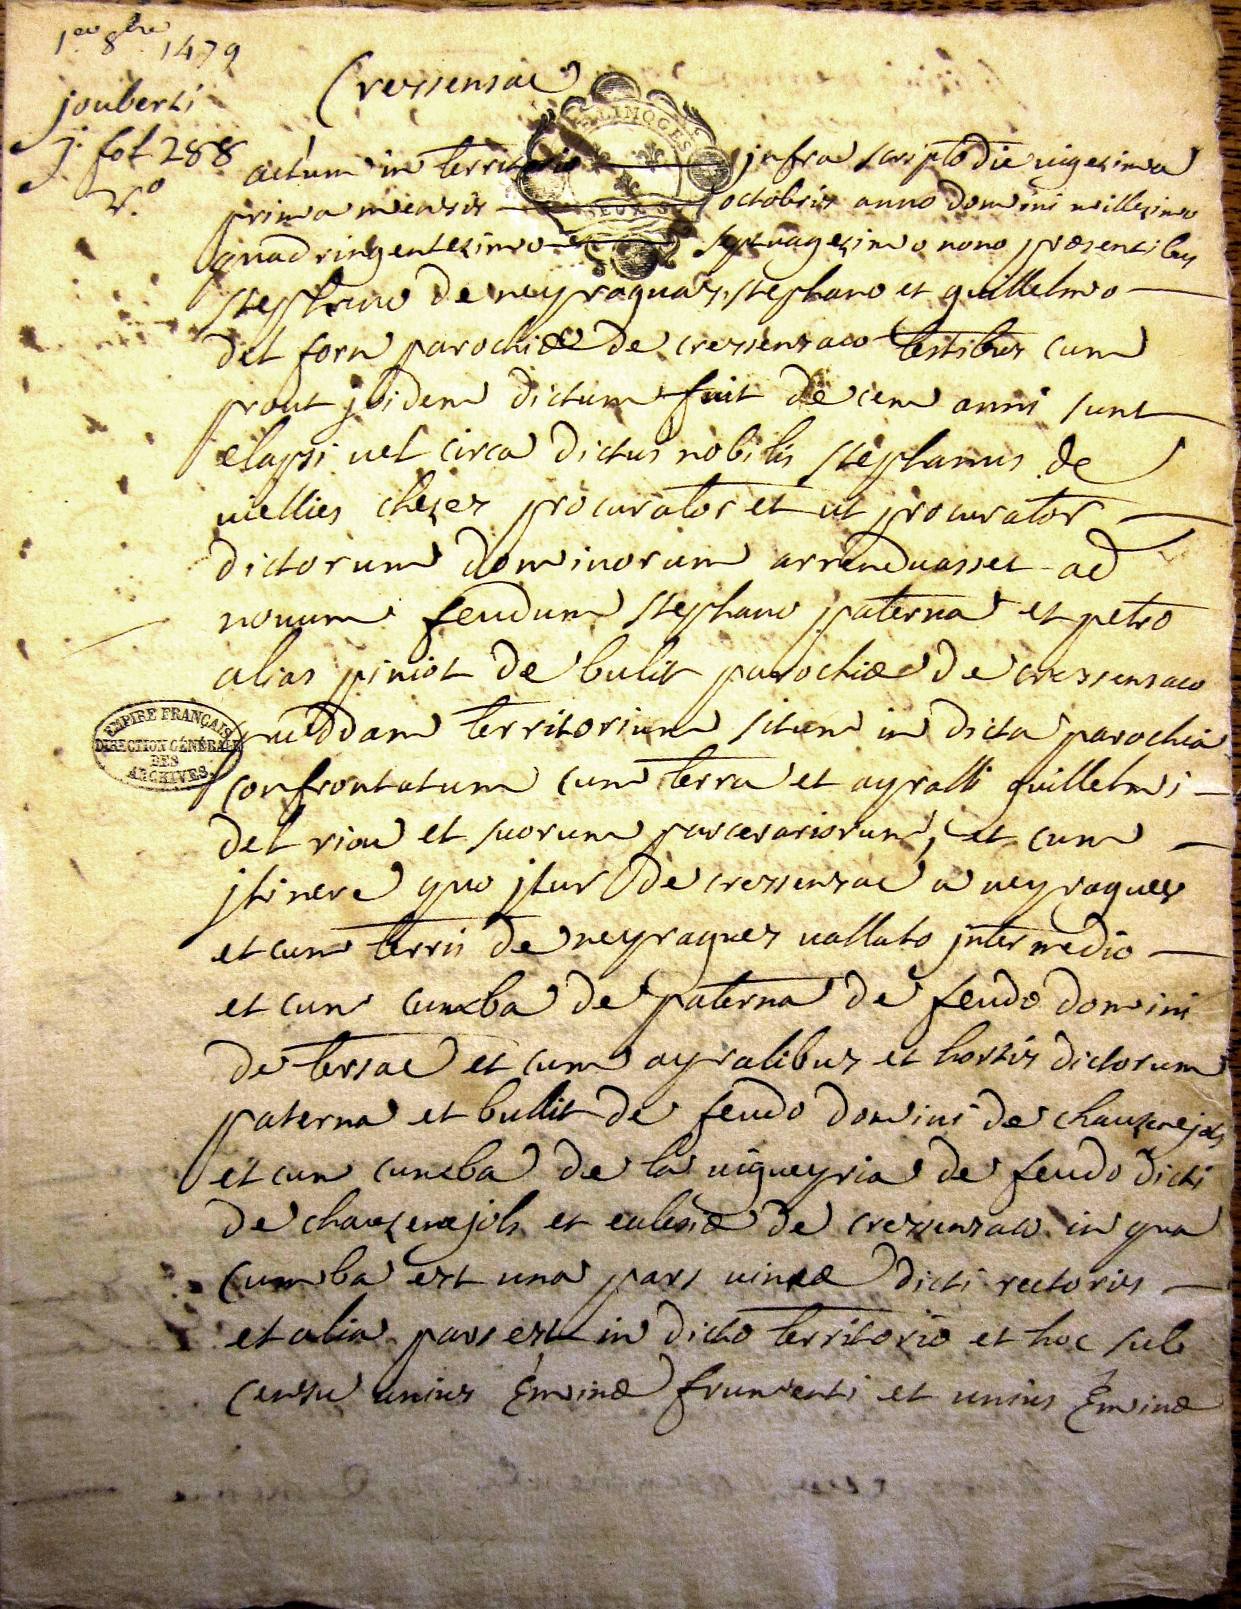 1er 8bre 1479
jouberti
j. fol 288
v.o
Cressensac
LIMOGES
DEUX S
actum in territorio infra scripto die uigezima
prima mensis octobris anno domini millezimo
quadringentezimo septuagezimo nono præsentibus
stephano de neyraguas, stephano et guillelmo
del forn parochiæ de cressensaco testibus cum
prout jbidem dictum fuit decem anni sunt
elapsi uel circa dictus nobilis stephanus de
uiellies chezes procurator et ut procurator
dictorum dominorum arrenduasset ad
nouum feudum stephano paterna et petro
alias piniot de bulit parochiæ de cressensaco
quoddam territorium situm in dicta parochia
confrontatum cum terra et ayralli guillelmi
del riou et suorum parcerariorum, et cum
jtinere quo jtur de cressensac a neyragues
et cum terris de neyragues uallato jntermedio
et cum cumba de paterna de feudo domini
de tersac et cum ayralibus et hortis dictorum
paterna et bullit de feudo domini de chauzenejols
et cum cumba de la uigueyria de feudo dicti
de chauzenejols et eclesiæ de cressensaco in qua
cumba est una pars uineæ dicti rectoris
et alia pars est in dicto territorio et hoc sub
censu unius eminæ frumenti et unius eminæ
EMPIRE FRANÇAIS
DIRECTION GÉNÉRALE
DES
ARCHIVES.